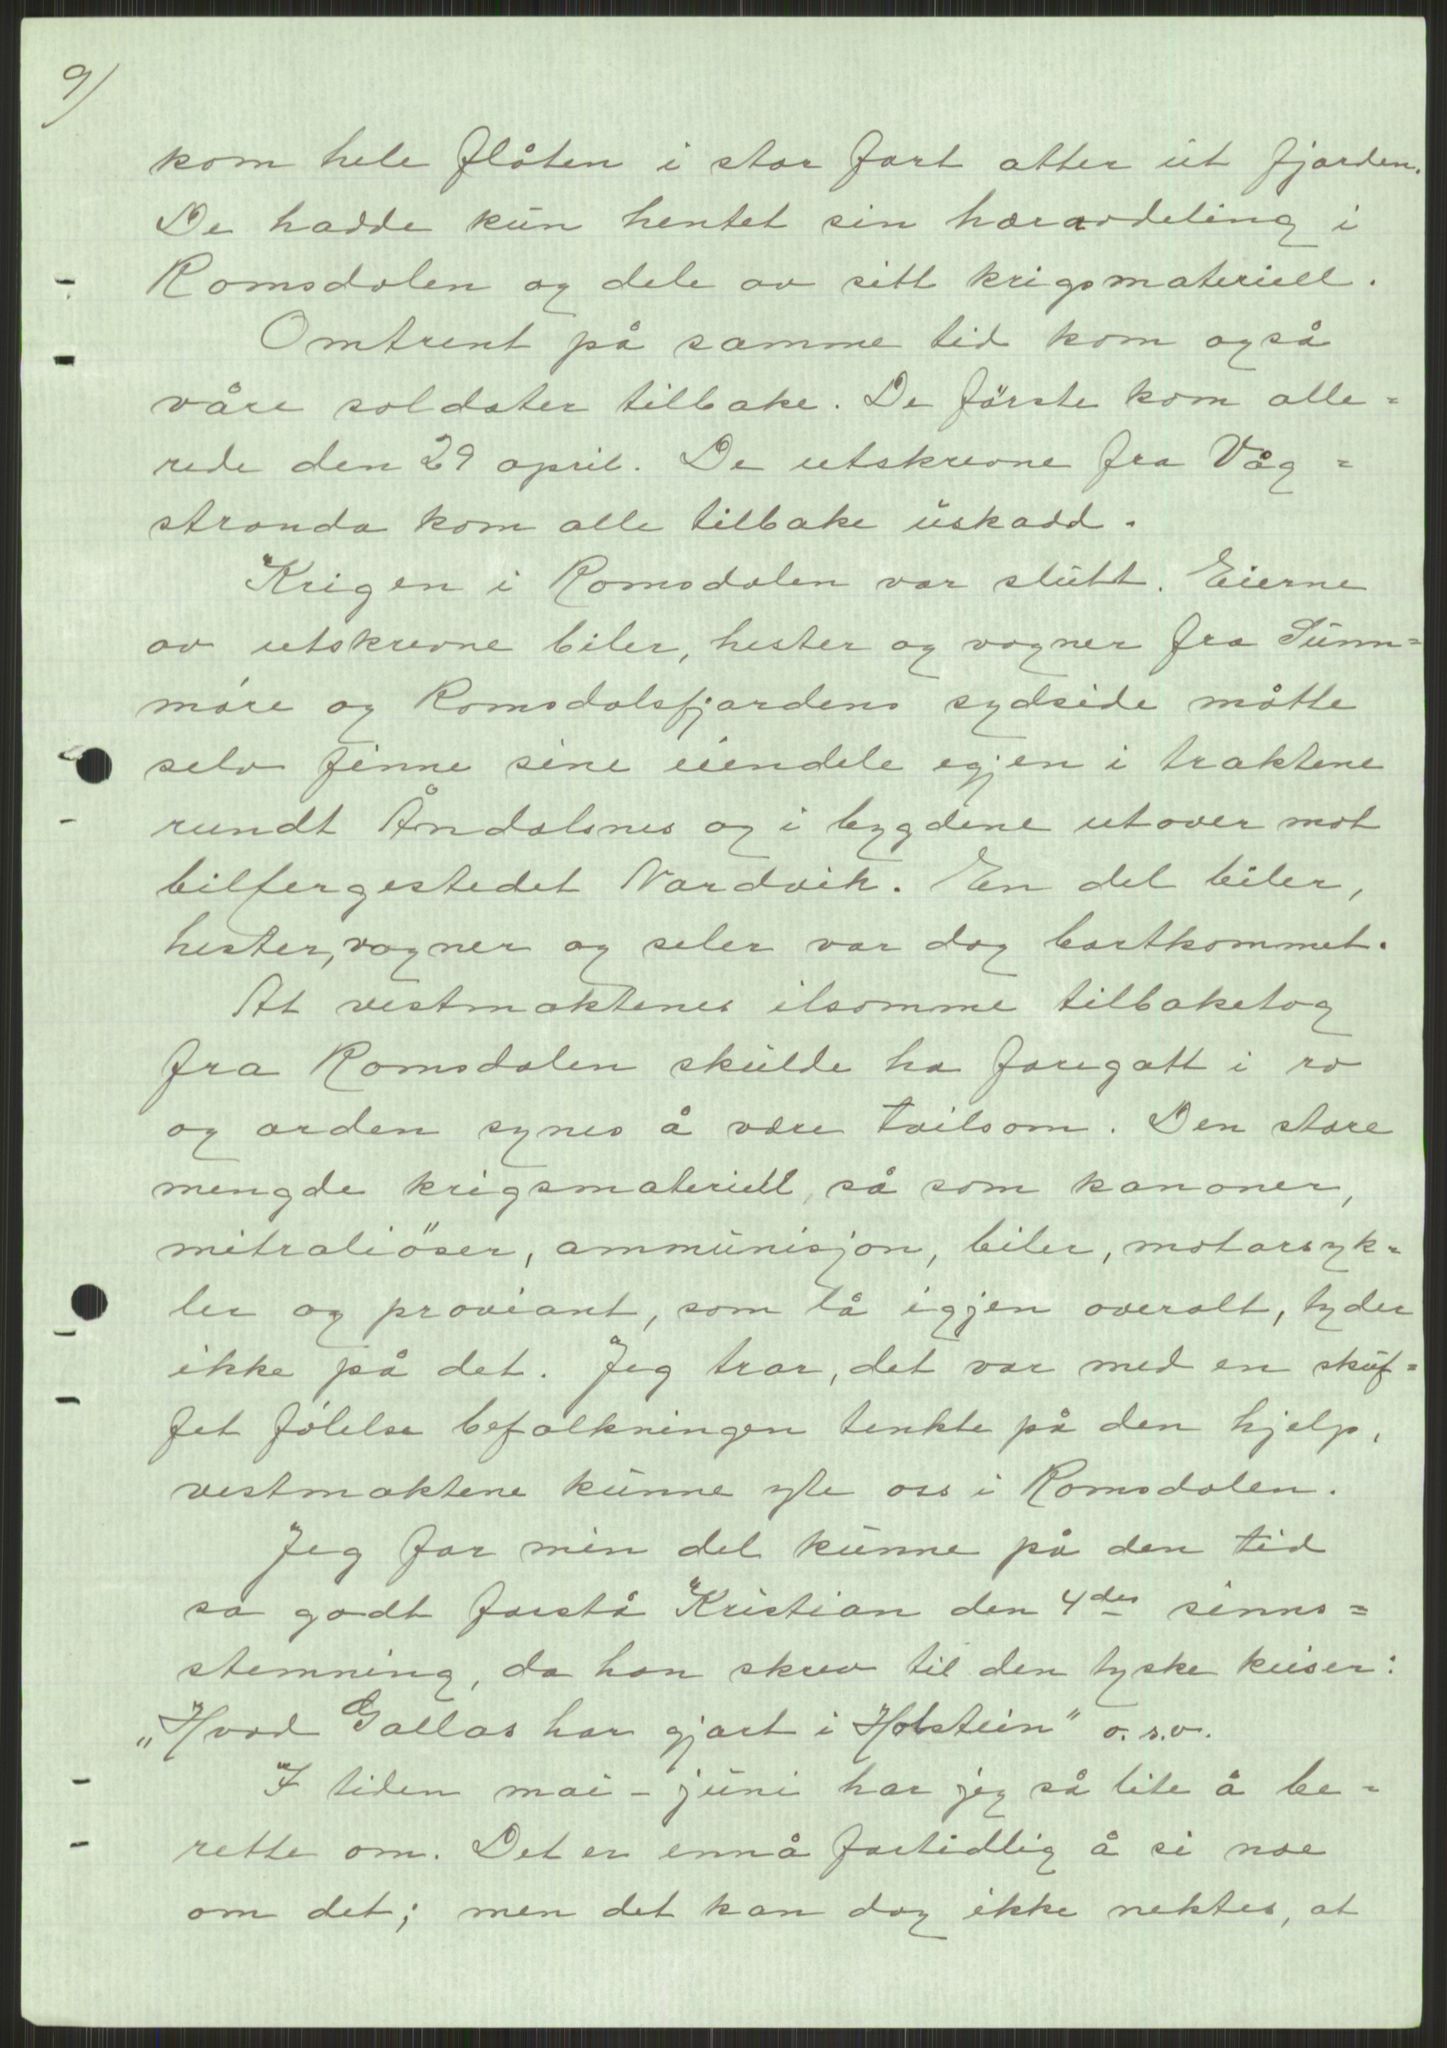 9/
kom hele flåten i stor fart atter ut fjorden.
De hadde kun hentet sin hæravdeling i
Romsdalen og dele av sitt krigsmateriell.
Omtrent på samme tid kom også
våre soldater tilbake. De förste kom alle=
rede den 29 april. De utskrevne fra Våg=
stranda kom alle tilbake uskadd.
Krigen i Romsdalen var slutt. Eierne
av utskrevne biler, hester og vogner fra Sunn=
möre og Romsdalsfjordens sydside måtte
selv finne sine eiendele igjen i traktene
rundt Åndalsnes og i bygdene utover mot
bilfergestedet Nordvik. En del biler,
hester, vogner og seler var dog bortkommet.
At vestmaktenes ilsomme tilbaketog
fra Romsdalen skulde ha foregått i ro
og orden synes å være tvilsom. Den store
mengde krigsmateriell, så som kanoner,
mitraliöser, ammunisjon, biler, motorsyk=
ler og proviant, som lå igjen overalt, tyder
ikke på det. Jeg tror, det var med en skuf=
fet fölelse befolkningen tenkte på den hjelp,
vestmaktene kunne yte oss i Romsdalen.
Jeg for min del kunne på den tid
så godt forstå Kristian den 4des sinns=
stemning, da han skrev til den tyske keiser:
„Hvad Gallas har gjort i Holstein" o.s.v.
I tiden mai - juni har jeg så lite å be=
rette om. Det er ennå fortidlig å si noe
om det; men det kan dog ikke nektes, at